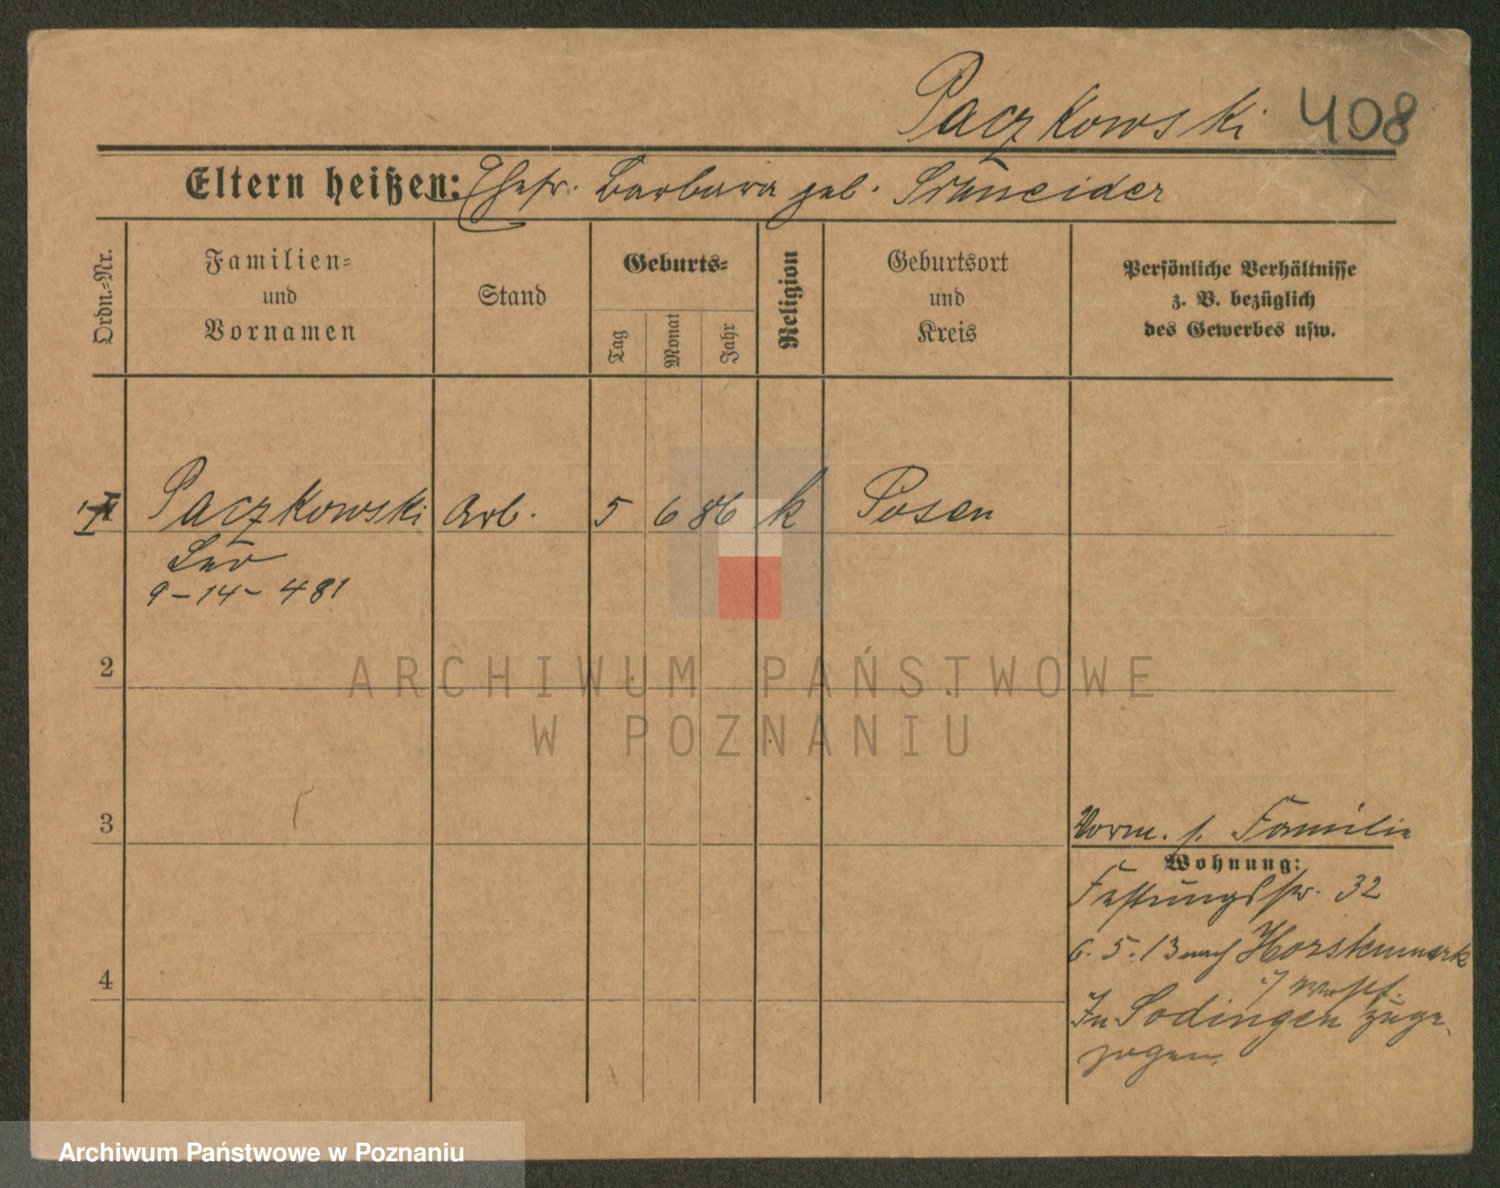 Paczkowski 408
Eltern heißen: Ehefr. Barbara geb. Schneider
Ordn.-Nr.
Familien-
und
Vornamen
Stand
Geburts-
Tag
Monat
Jahr
Religion
Geburtsort
und
Kreis
Persönliche Verhältnisse
z. B. bezüglich
des Gewerbes usw.
Paczkowski Arb. 5 6 86 k Posen
Leo
9-14-481
2
ARCHIWUM PAŃSTWOWE
W POZNANIU
3
Vorm. s. Familie
Wohnung:
Festungsstr. 32
6.5.13 nach Horstermark
i/ Westf.
4
In Sodingen zuge-
zogen.
Archiwum Państwowe w Poznaniu